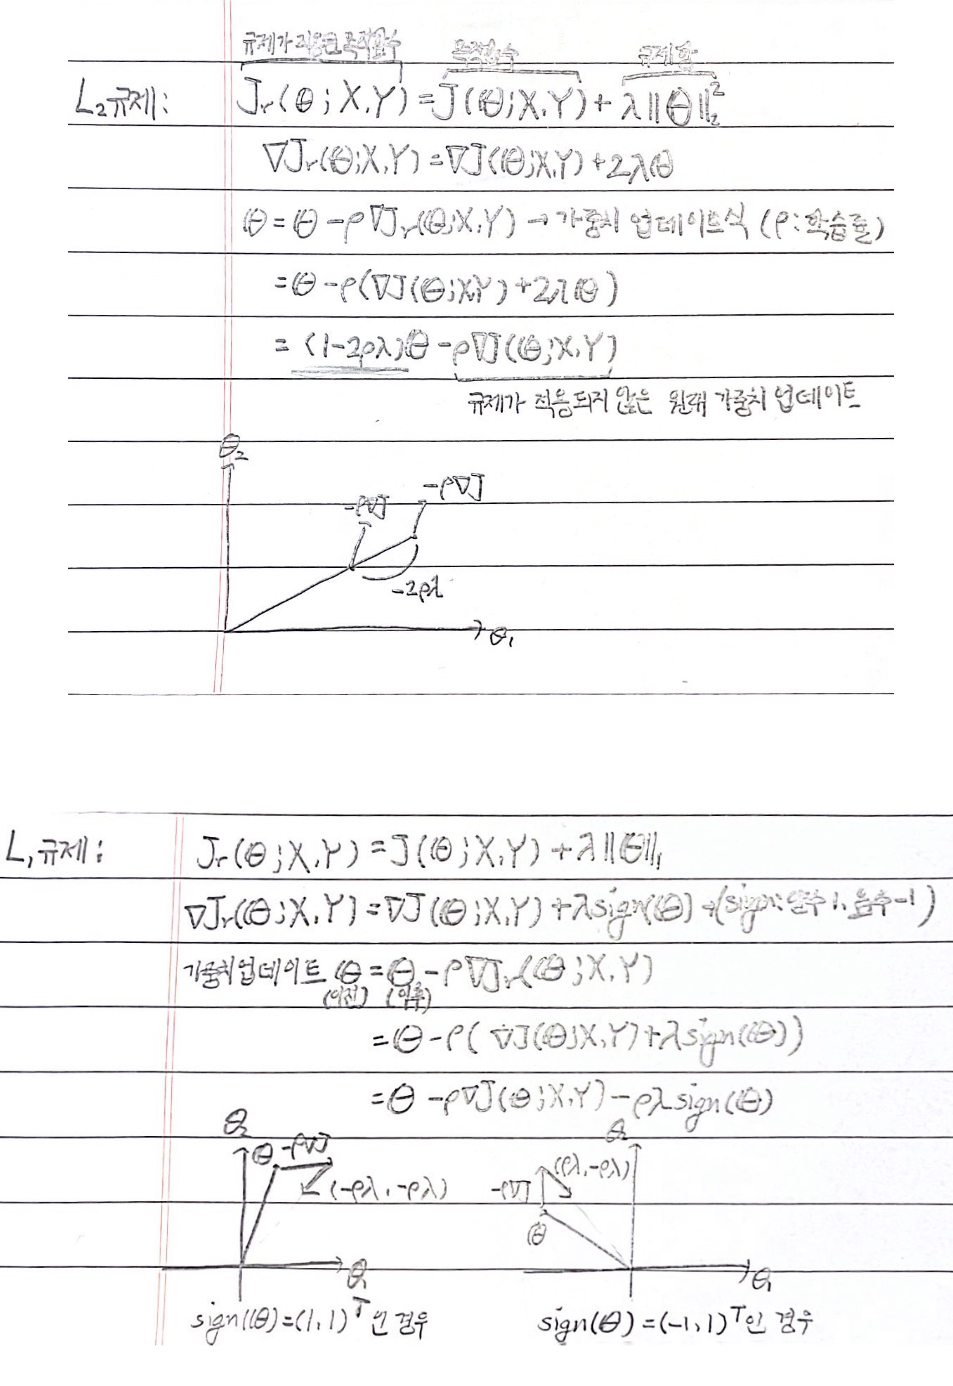 규제가 적용된 목적함수 목적함수 규제항
L₂규제: Jᵣ(Θ;X,Y) = J(Θ;X,Y) + λ‖Θ‖₂²
∇Jᵣ(Θ;X,Y) = ∇J(Θ;X,Y) + 2λΘ
Θ = Θ - ρ∇Jᵣ(Θ;X,Y) → 가중치 업데이트식 (ρ:학습률)
= Θ - ρ(∇J(Θ;X,Y) + 2λΘ)
= (1-2ρλ)Θ - ρ∇J(Θ;X,Y)
규제가 적용되지 않은 원래 가중치 업데이트
Θ₂
-ρ∇J
-ρ∇J
-2ρλ
Θ₁
L₁규제: Jᵣ(Θ;X,Y) = J(Θ;X,Y) + λ‖Θ‖₁
∇Jᵣ(Θ;X,Y) = ∇J(Θ;X,Y) + λsign(Θ) → (sign: 양수 1, 음수 -1)
가중치 업데이트 Θ = Θ - ρ∇Jᵣ(Θ;X,Y)
(이전) (이후)
= Θ - ρ(∇J(Θ;X,Y) + λsign(Θ))
= Θ - ρ∇J(Θ;X,Y) - ρλsign(Θ)
Θ₂ Θ₂
Θ -ρ∇J (ρλ, -ρλ)
(-ρλ, -ρλ) -ρ∇J
Θ
Θ₁ Θ₁
sign(Θ) = (1, 1)ᵀ인 경우 sign(Θ) = (-1, 1)ᵀ인 경우